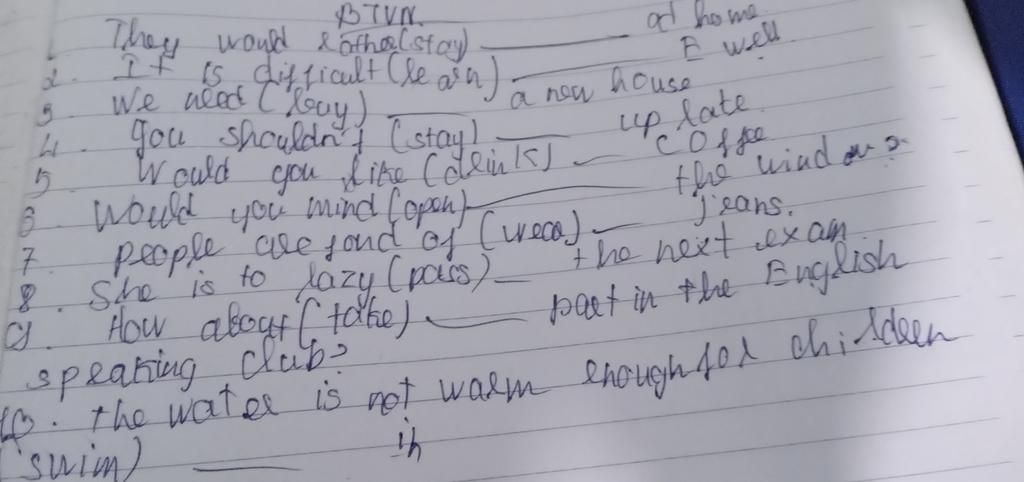 BTVN.
1. They would rather (stay) ______ at home
2. It is difficult (learn) ______ E well
3. We need (buy) ______ a new house
4. you shouldn't (stay) ______ up late
5. Would you like (drink) __ coffee
6. Would you mind (open) ______ the window?
7. people are fond of (wear) ______ jeans.
8. She is to lazy (pass) __ the next exam
9. How about (take) ______ part in the English
speaking club?
10. the water is not warm enough for children
(swim) ______ in